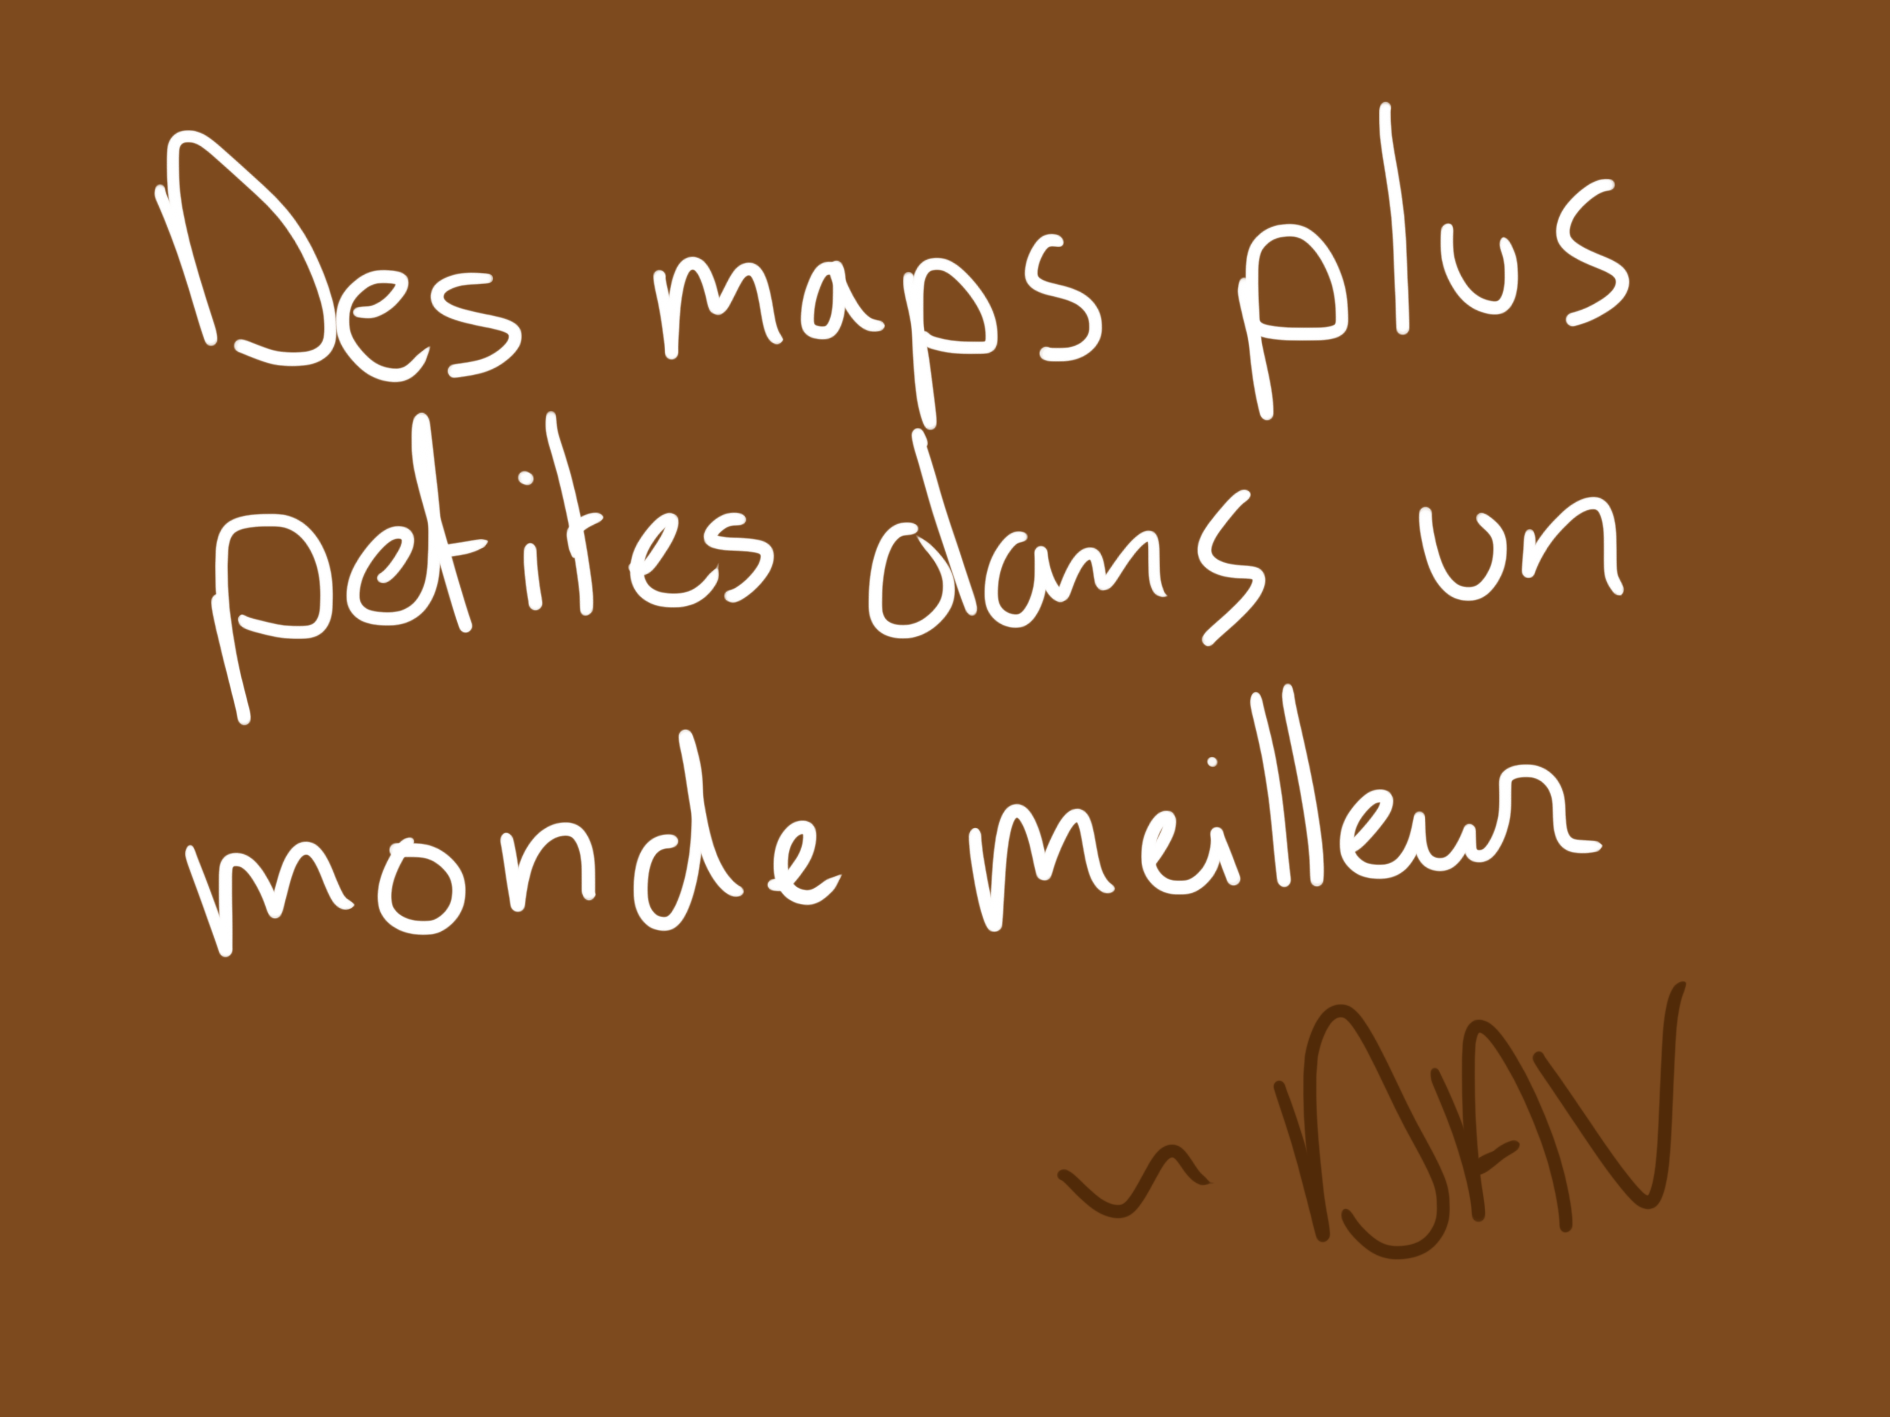 Des maps plus
petites dans un
monde meilleur
~ DAV